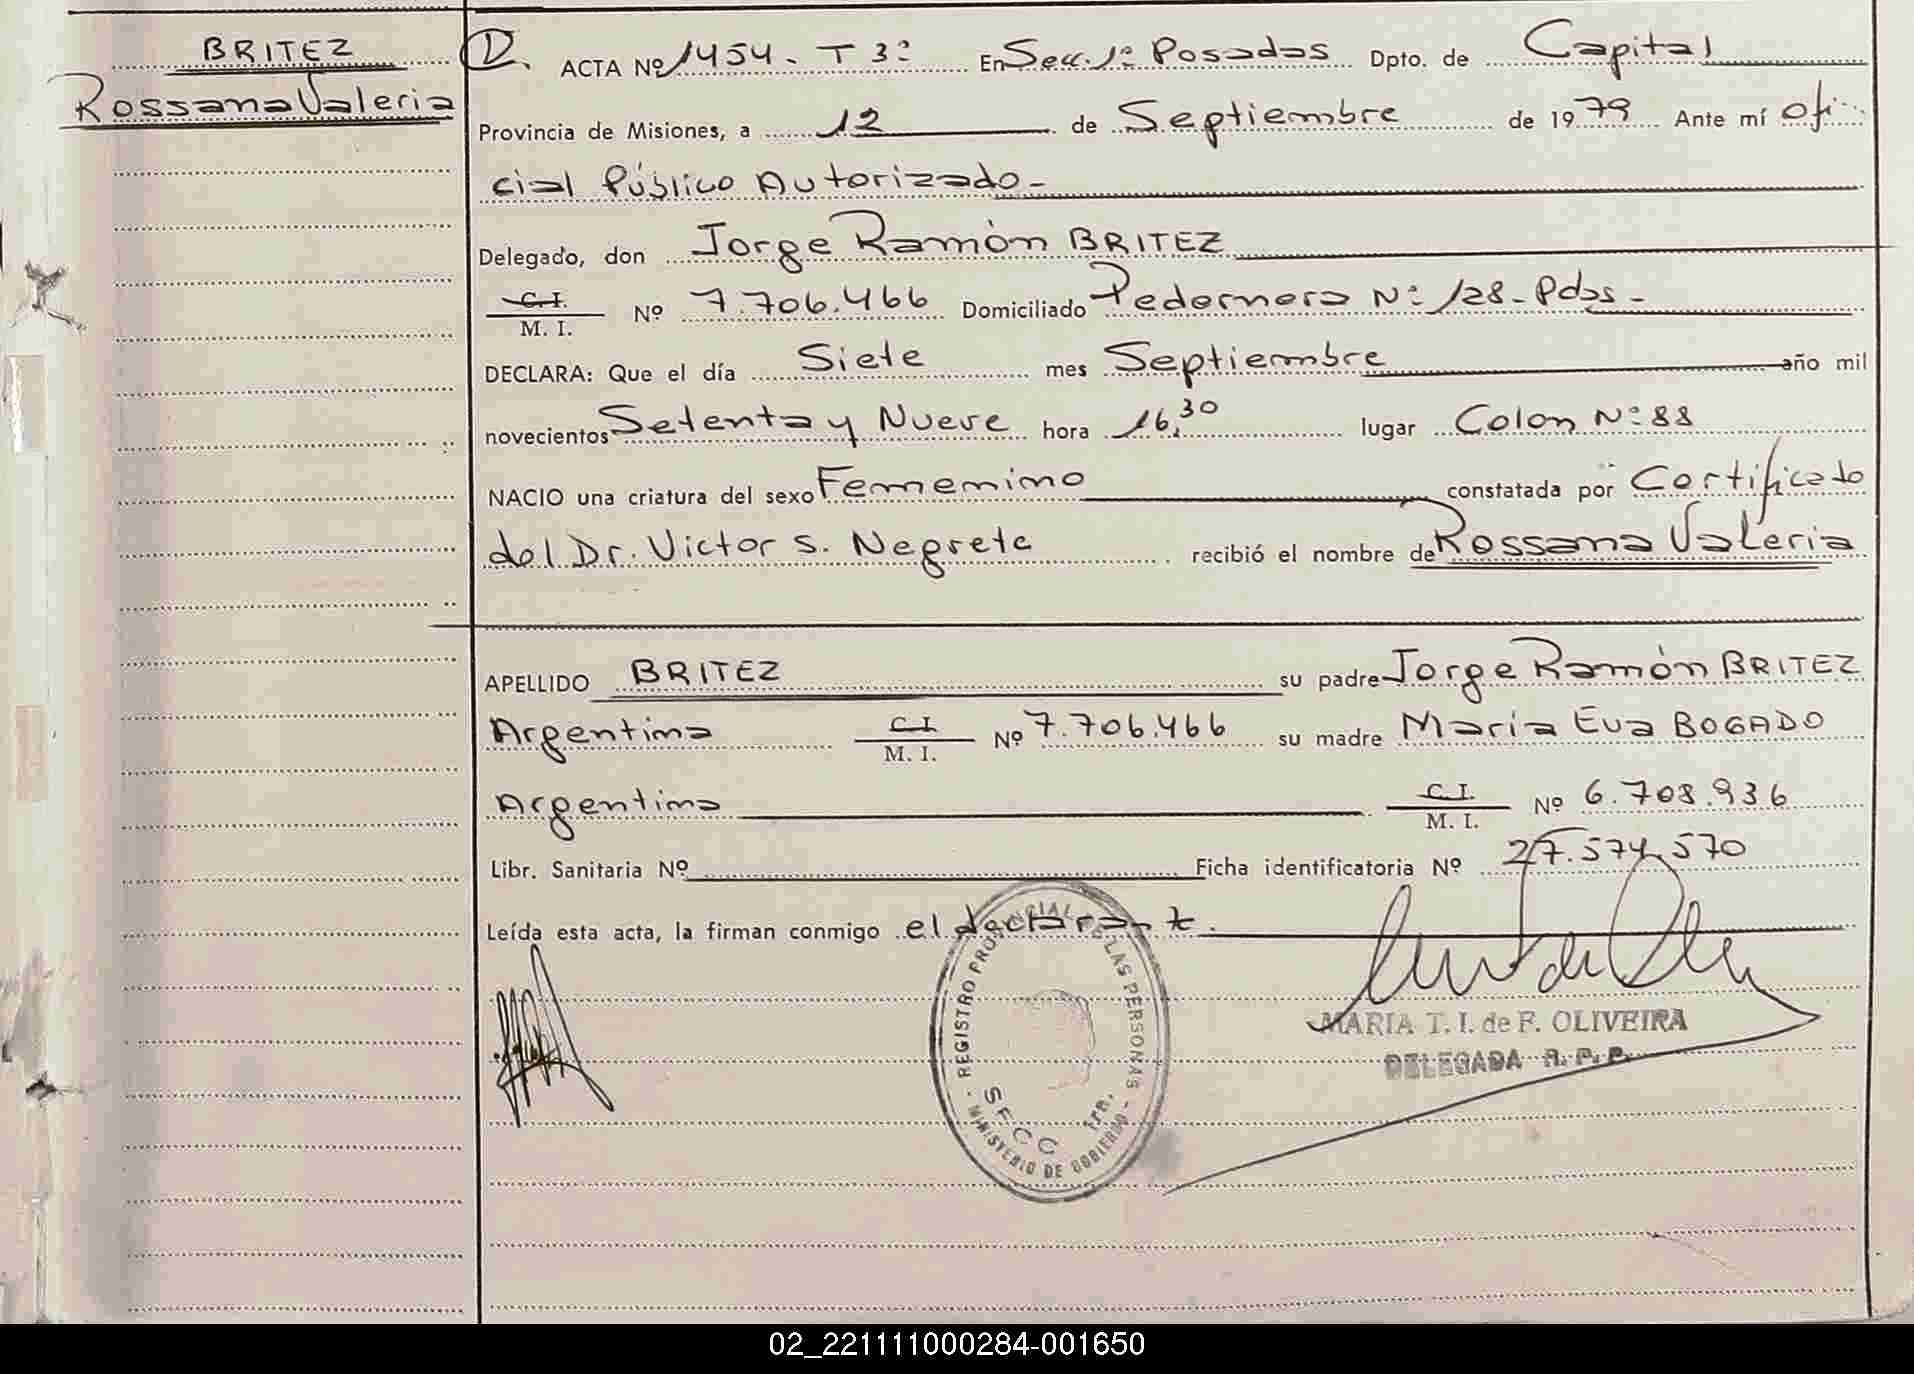 BRITEZ
Rossana Valeria
D. ACTA Nº 1454 - T 3º En Secc. 1º Posadas Dpto. de Capital
Provincia de Misiones, a 12 de Septiembre de 1979 Ante mí Ofi
cial Público Autorizado-
Delegado, don Jorge Ramón BRITEZ
C.I.
M. I. Nº 7.706.466 Domiciliado Pedernera Nº 128 - Pdas -
DECLARA: Que el día Siete mes Septiembre año mil
novecientos Setenta y Nueve hora 16,30 lugar Colon Nº 88
NACIO una criatura del sexo Femenino constatada por Certificado
del Dr. Victor S. Negrete recibió el nombre de Rossana Valeria
APELLIDO BRITEZ su padre Jorge Ramón BRITEZ
Argentina C.I. M. I. Nº 7.706.466 su madre Maria Eva BOGADO
Argentina C.I. M. I. Nº 6.708.936
Libr. Sanitaria Nº Ficha identificatoria Nº 27.574.570
Leída esta acta, la firman conmigo el declarante.
REGISTRO PROVINCIAL DE LAS PERSONAS
SECC 1RA.
- MINISTERIO DE GOBIERNO -
MARIA T. I. de F. OLIVEIRA
DELEGADA R. P. P.
02_221111000284-001650